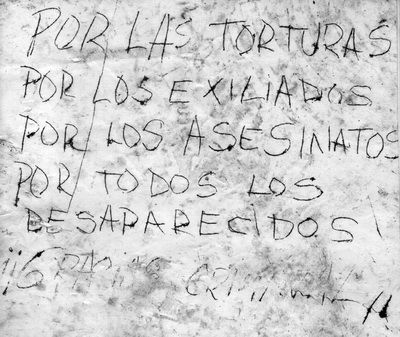 POR LAS TORTURAS
POR LOS EXILIADOS
POR LOS ASESINATOS
POR TODOS LOS
DESAPARECIDOS